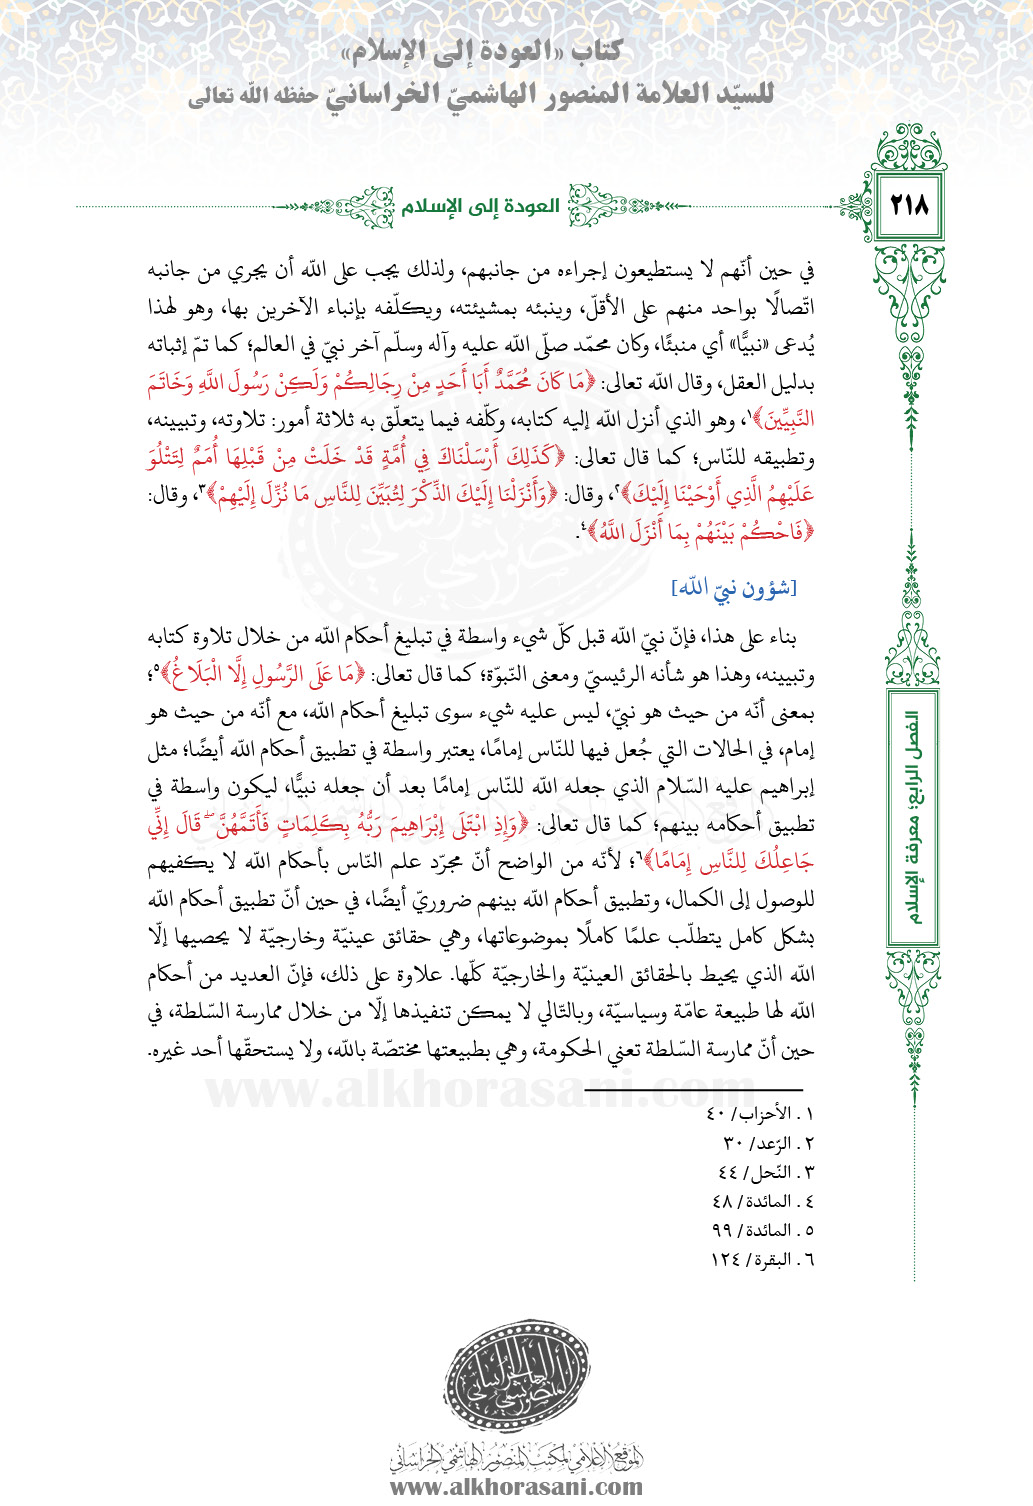 كتاب «العودة إلى الإسلام»
للسيّد العلامة المنصور الهاشميّ الخراسانيّ حفظه الله تعالى
٢١٨
العودة إلى الإسلام
في حين أنّهم لا يستطيعون إجراءه من جانبهم، ولذلك يجب على الله أن يجري من جانبه
اتّصالًا بواحد منهم على الأقلّ، وينبئه بمشيئته، ويكلّفه بإنباء الآخرين بها، وهو لهذا
يُدعى «نبيًّا» أي منبئًا، وكان محمّد صلّى الله عليه وآله وسلّم آخر نبيّ في العالم؛ كما تمّ إثباته
بدليل العقل، وقال الله تعالى: ﴿مَا كَانَ مُحَمَّدٌ أَبَا أَحَدٍ مِنْ رِجَالِكُمْ وَلَكِنْ رَسُولَ اللَّهِ وَخَاتَمَ
النَّبِيِّينَ﴾١، وهو الذي أنزل الله إليه كتابه، وكلّفه فيما يتعلّق به ثلاثة أمور: تلاوته، وتبيينه،
وتطبيقه للنّاس؛ كما قال تعالى: ﴿كَذَلِكَ أَرْسَلْنَاكَ فِي أُمَّةٍ قَدْ خَلَتْ مِنْ قَبْلِهَا أُمَمٌ لِتَتْلُوَ
عَلَيْهِمُ الَّذِي أَوْحَيْنَا إِلَيْكَ﴾٢، وقال: ﴿وَأَنْزَلْنَا إِلَيْكَ الذِّكْرَ لِتُبَيِّنَ لِلنَّاسِ مَا نُزِّلَ إِلَيْهِمْ﴾٣، وقال:
﴿فَاحْكُمْ بَيْنَهُمْ بِمَا أَنْزَلَ اللَّهُ﴾٤.
[شؤون نبيّ الله]
بناء على هذا، فإنّ نبيّ الله قبل كلّ شيء واسطة في تبليغ أحكام الله من خلال تلاوة كتابه
وتبيينه، وهذا هو شأنه الرئيسيّ ومعنى النّبوّة؛ كما قال تعالى: ﴿مَا عَلَى الرَّسُولِ إِلَّا الْبَلَاغُ﴾٥؛
بمعنى أنّه من حيث هو نبيّ، ليس عليه شيء سوى تبليغ أحكام الله، مع أنّه من حيث هو
إمام، في الحالات التي جُعل فيها للنّاس إمامًا، يعتبر واسطة في تطبيق أحكام الله أيضًا؛ مثل
إبراهيم عليه السّلام الذي جعله الله للنّاس إمامًا بعد أن جعله نبيًّا، ليكون واسطة في
تطبيق أحكامه بينهم؛ كما قال تعالى: ﴿وَإِذِ ابْتَلَى إِبْرَاهِيمَ رَبُّهُ بِكَلِمَاتٍ فَأَتَمَّهُنَّ ۖ قَالَ إِنِّي
جَاعِلُكَ لِلنَّاسِ إِمَامًا﴾٦؛ لأنّه من الواضح أنّ مجرّد علم النّاس بأحكام الله لا يكفيهم
للوصول إلى الكمال، وتطبيق أحكام الله بينهم ضروريّ أيضًا، في حين أنّ تطبيق أحكام الله
بشكل كامل يتطلّب علمًا كاملًا بموضوعاتها، وهي حقائق عينيّة وخارجيّة لا يحصيها إلّا
الله الذي يحيط بالحقائق العينيّة والخارجيّة كلّها. علاوة على ذلك، فإنّ العديد من أحكام
الله لها طبيعة عامّة وسياسيّة، وبالتّالي لا يمكن تنفيذها إلّا من خلال ممارسة السّلطة، في
حين أنّ ممارسة السّلطة تعني الحكومة، وهي بطبيعتها مختصّة بالله، ولا يستحقّها أحد غيره.
الفصل الرابع؛ معرفة الإسلام
www.alkhorasani.com
١. الأحزاب/ ٤٠
٢. الرّعد/ ٣٠
٣. النّحل/ ٤٤
٤. المائدة/ ٤٨
٥. المائدة/ ٩٩
٦. البقرة/ ١٢٤
الموقع الإعلامي لمكتب المنصور الهاشمي الخراساني
www.alkhorasani.com